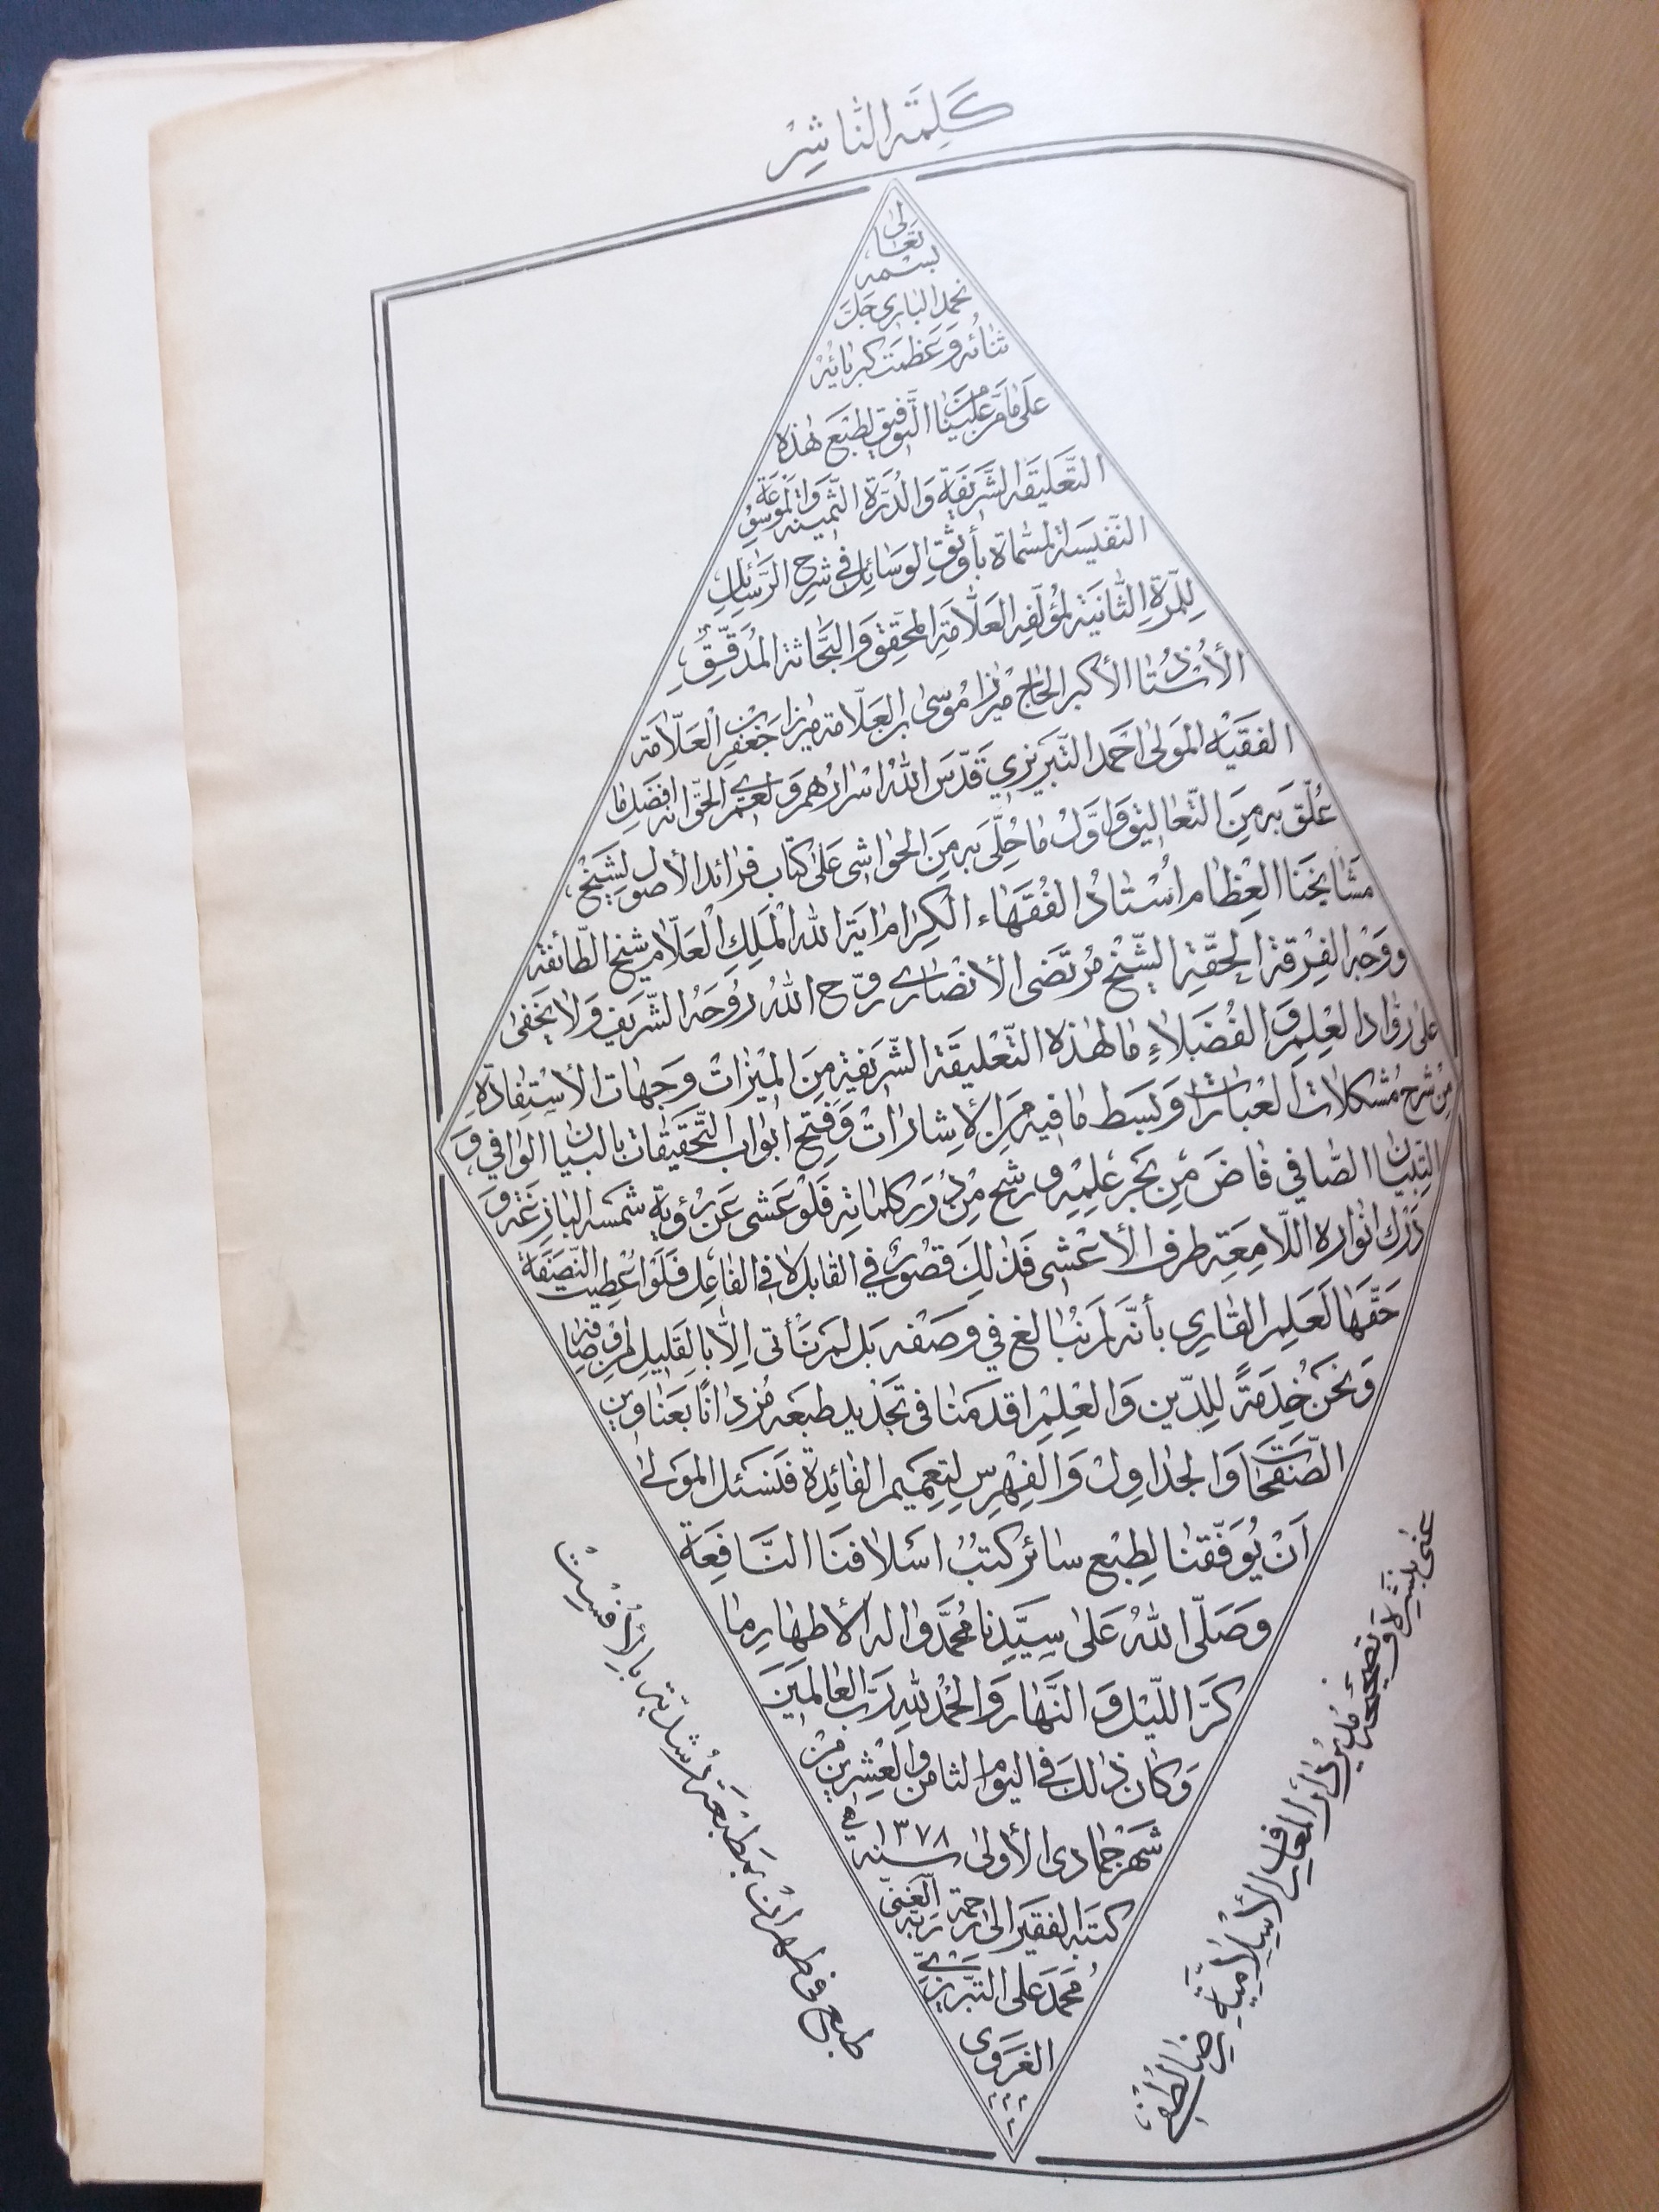 كَلِمَة النَّاشِر
بسمه تعالى
نحمد الباري جَلَّ
ثنائه وعَظمَت كبريائه
عَلى مامَنّ علينا من التّوفيق لطبْع هذه
التَّعليقة الشَّريفَة وَالدُّرَّة الثَّمينه والموسوُعَة
النّفيسَة المسماة بأوثق الوسَائِل في شرح الرّسَائِل
لِلمَرّةِ الثّانيَة لمؤلّفِه العَلّامَةِ المحقِّق وَالبَحّاثة المُدقّقِ
الأسُتاذُ الأكبر الحاج ميرزا موُسىٰ بن العَلّامة ميرزا جَعْفر بن العَلّامَة
الفقيْه المَولى احَمد التّبريزي قَدّسَ اللهُ اسْرارُهم وَلعَمري الحَقّ انه افضَل ما
عُلّقَ به مِنَ التّعاليق وَاوّلْ ما حُلّى به مِنَ الحَواشى عَلىٰ كتاب فرائد الأصول لِشيَخ
مشَايخنا العِظام اسْتادُ الفُقهَاء الكِرام اٰية الله المَلِكِ العَلّام شيخ الطّائفة
ووَجْه الفِرقة الحَقّةِ الشّيْخ مُرتضى الأنصارى روّح اللهُ روُحَهُ الشّريف وَلا يَخفىٰ
علىٰ روّاد العِلِم وَ الفُضَلاءِ ما لهٰذه التّعليقَة الشّريفةِ مِنَ الميْزاتْ وجَهات الأسْتِفادَةِ
مِنْ شرح مُشكلات العبارات وَبسَط ما فيه مِنَ الإشاراتْ وَفتِح ابواب التَّحقيقات بالبيان الوافي وَ
التِبيْان الصّافي فاضَ مِن بحَر عِلمِهِ ورشح مِنْ دُرَر كلماتِه فَلَو عَشى عَن رُؤيَة شمْسه البازِغَه وَ
دَرْك انواره اللّامعَةِ طرف الأعْشى فذٰلِكَ قصُورٌ في القابل لا في الفاعِل فَلَو اعُطِيت النّصَفَة
حَقّهَا لَعَلِم القارِي بأنّه لَم نبُالغ في وصْفه بَل لم نَأتى اِلّا بالقليل من اوصافِه
وَنحَن خِدمَةً للِدّين وَالعِلِم اقدَمنا فى تَجْديد طبعَه مُزدانًا بعَناوين
الصّفحَات وَالجداوِل وَالفِهْرِس لِتعمَيم الفائِدة فنسَئل المَولىٰ
اَنْ يُوَفّقنا لِطبْع سائر كتبُ اسَلافنَا النَّافِعَة
وَصَلّى اللهُ عَلىٰ سيّدِنا مُحمّد واٰله الأطهار ما
كرّ اللّيل وَ النَّهار وَالحَمدُ للهِ رَبّ العالمَين
وَكان ذٰلكَ في اليَوم الثامن والعِشرين مِنْ
شَهْر جُمادى الأولىٰ سنه ١٣٧٨
كتبَه الفقير الىٰ رحمة ربّه الغَنىّ
مُحمدَعلى التبّريزي
الغَرَوى
عنىٰ بنَشره وَتصْحيحه مُديرُ دٰار المعارِف الأسِلاميّة
طبع فى طهران بمَطبعة